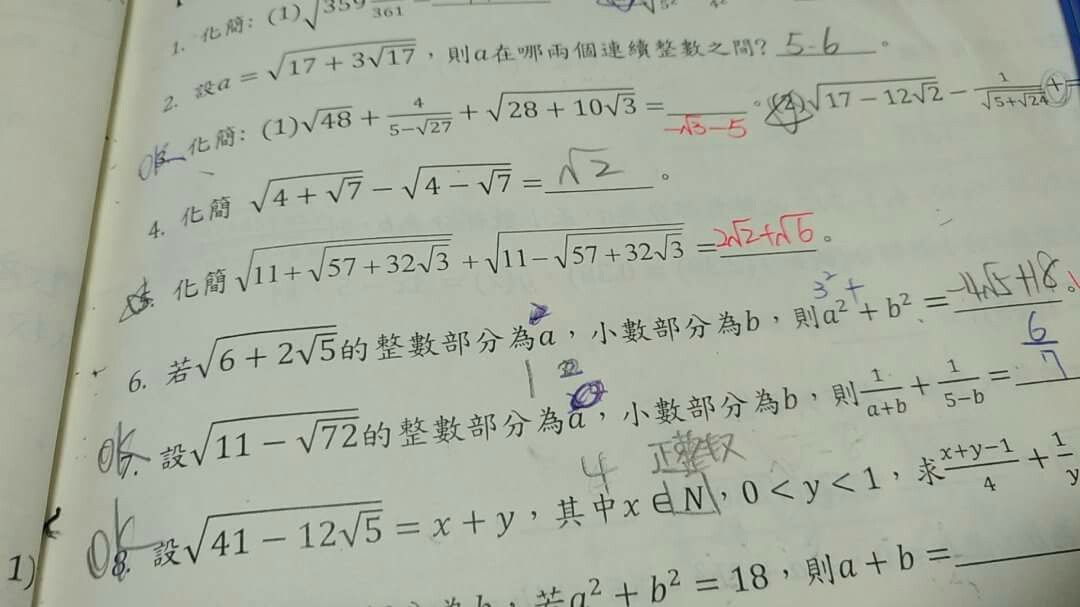 1. 化簡: (1)√359/361
2. 設a = √(17 + 3√17)，則a在哪兩個連續整數之間? 5-6。
OK 3. 化簡: (1)√48 + 4/(5−√27) + √(28 + 10√3) = −√3−5。(2)√(17 − 12√2) − 1/√(5+√24) +
4. 化簡 √(4 + √7) − √(4 − √7) = √2。
5. 化簡√(11+√(57 + 32√3)) + √(11−√(57 + 32√3)) = 2√2+√6。
6. 若√(6 + 2√5)的整數部分為a，小數部分為b，則a² + b² = −4√5+18。
3²+
OK 7. 設√(11 − √72)的整數部分為a，小數部分為b，則1/(a+b) + 1/(5−b) = 6/7
1
4 正整数
OK 8. 設√(41 − 12√5) = x + y，其中x ∈ N，0 < y < 1，求(x+y−1)/4 + 1/y
1)
若a² + b² = 18，則a + b =